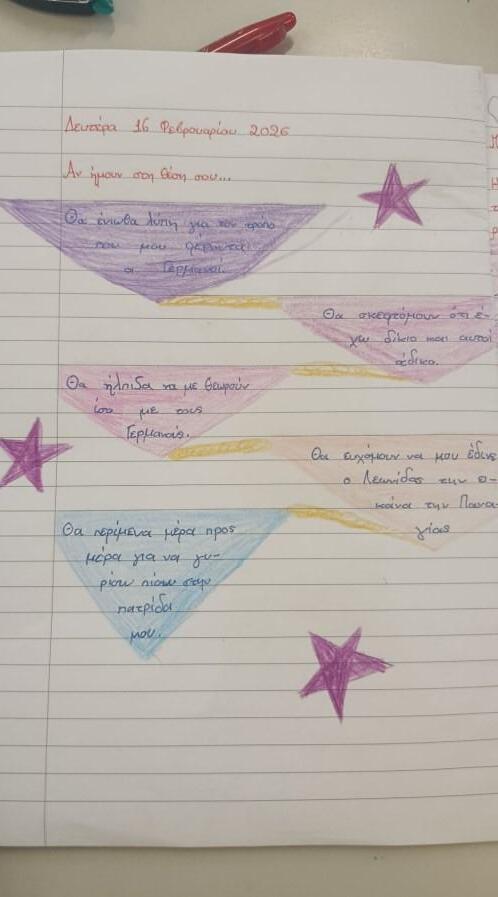 Δευτέρα 16 Φεβρουαρίου 2026
Αν ήμουν στη θέση σου...
Θα ένιωθα λύπη για τον τρόπο
που μου φέρονται
οι Γερμανοί.
Θα σκεφτόμουν ότι έ-
χω δίκιο και αυτοί
άδικο.
Θα ήλπιδα να με θεωρούν
ίσο με τους
Γερμανούς.
Θα ευχόμουν να μου έδινε
ο Λεωνίδας την ει-
κόνα την Πανα-
γίας
Θα περίμενα μέρα προς
μέρα για να γυ-
ρίσω πίσω στην
πατρίδα
μου.